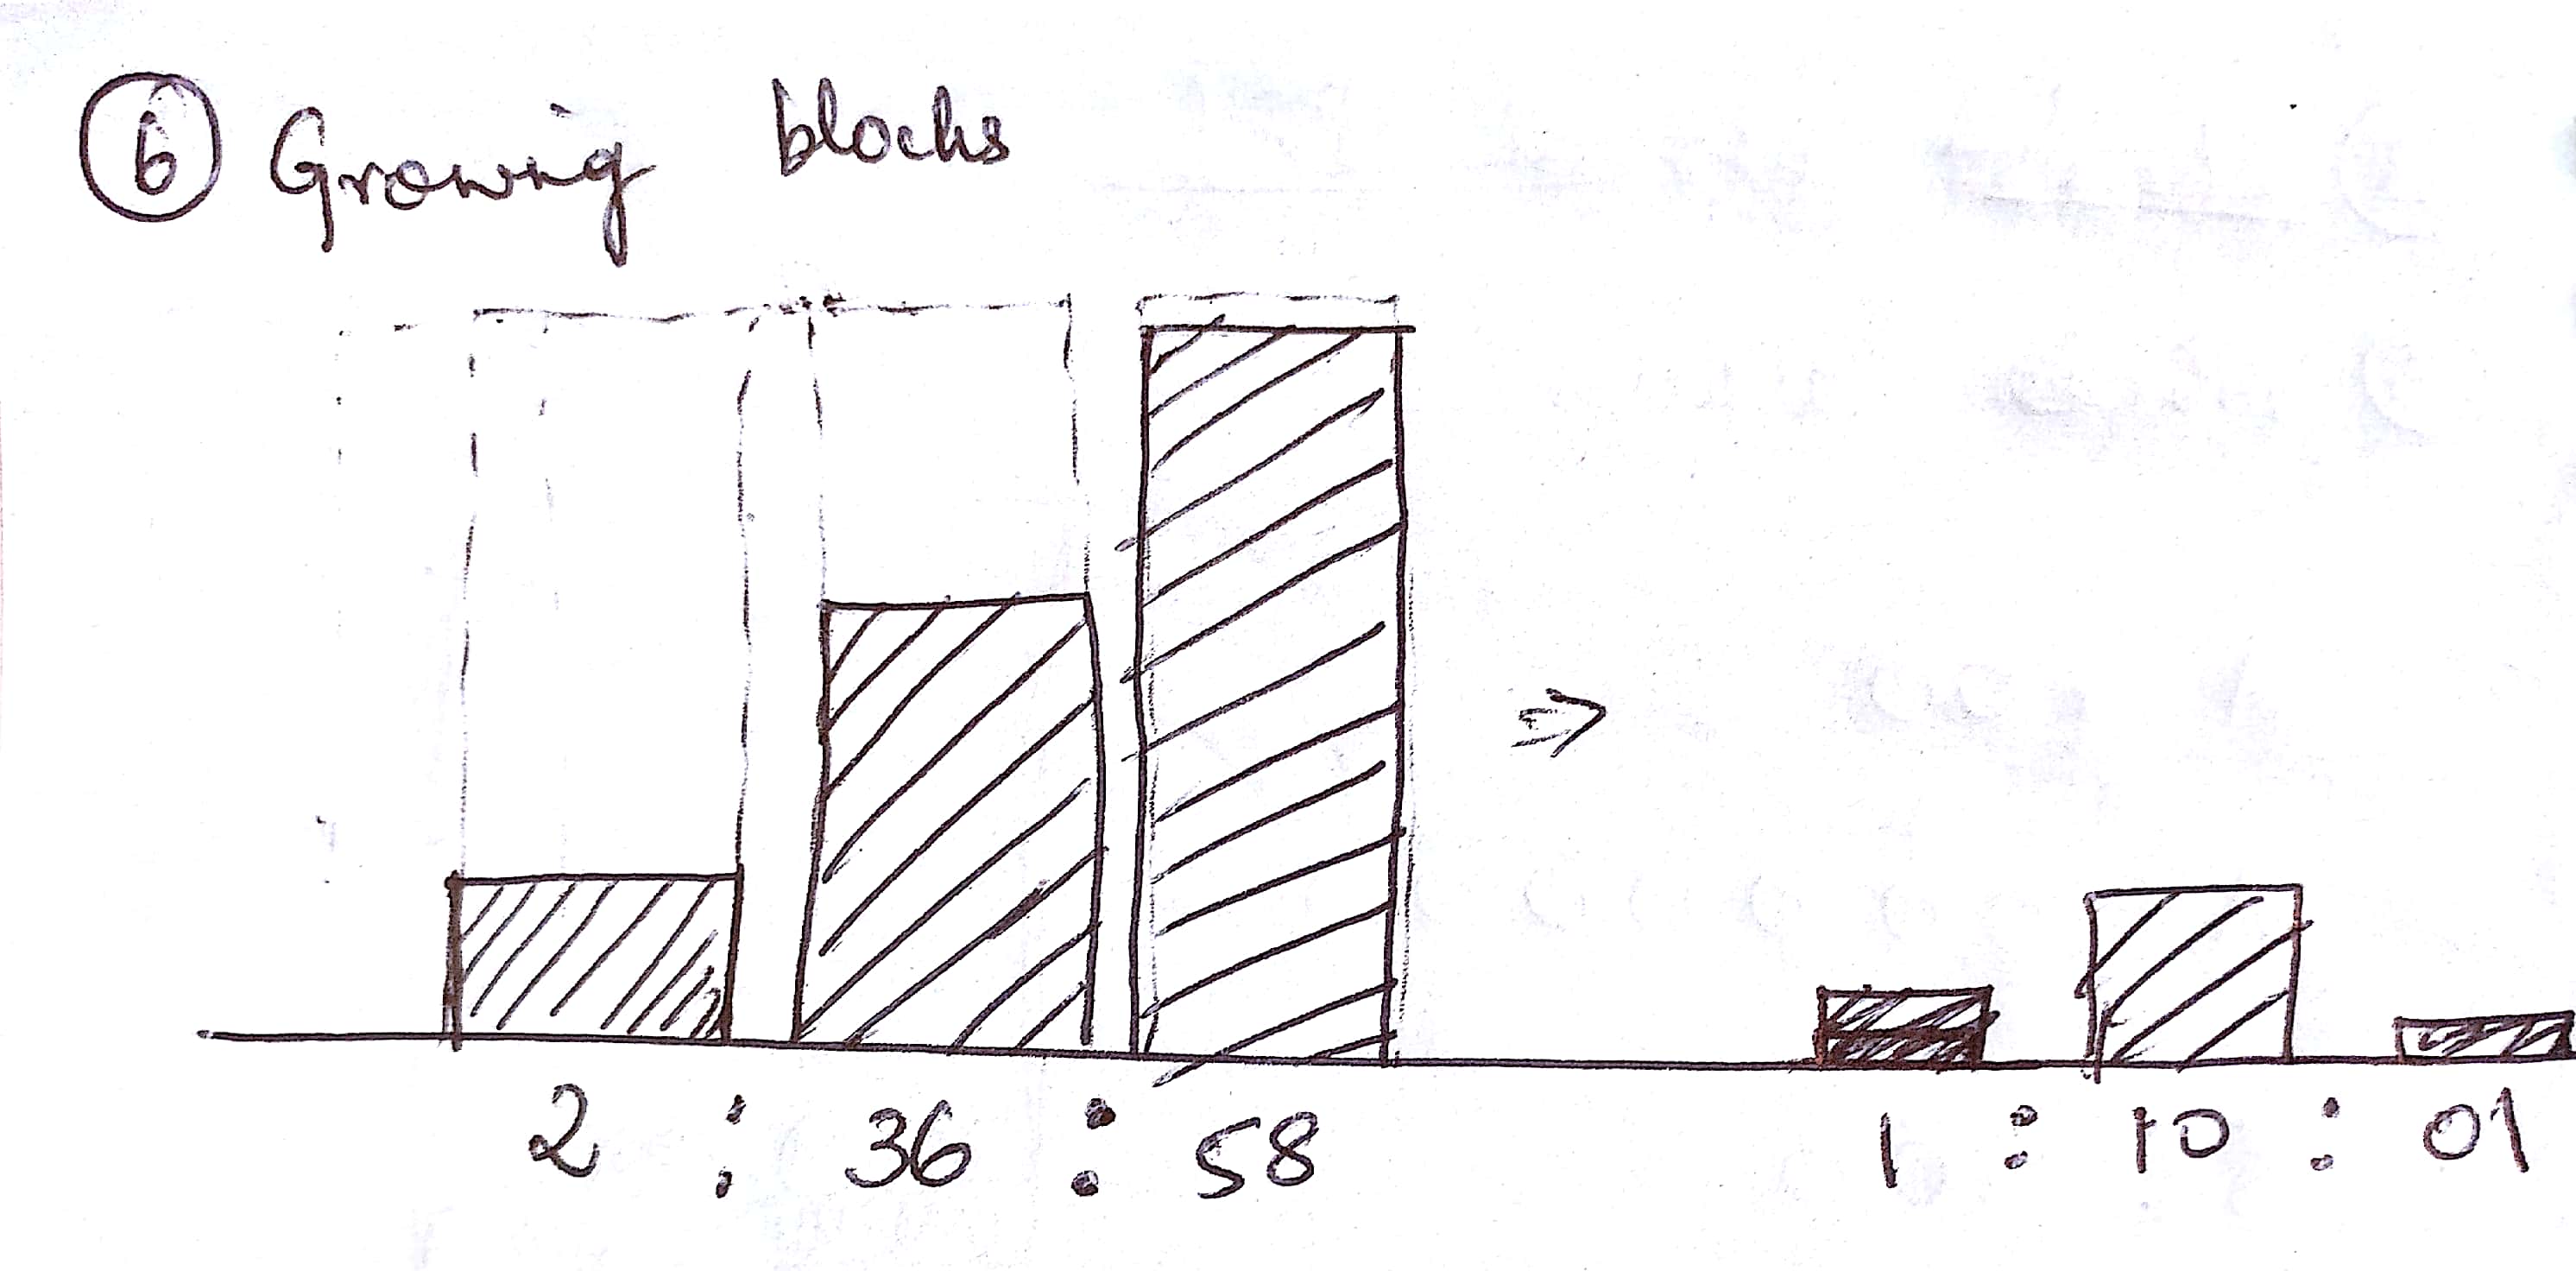 6 Growing blocks
2 : 36 : 58
1 : 10 : 01